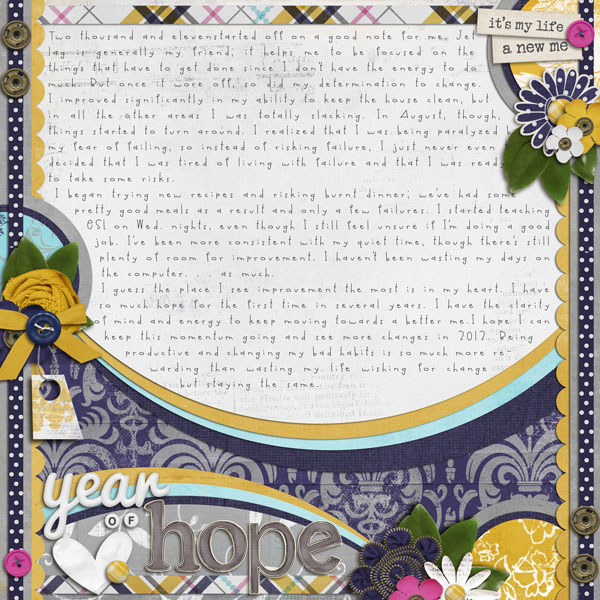 it's my life
a new me
Two thousand and elevenstarted off on a good note for me. Jet
lag is generally my friend; it helps me to be focused on the
things that have to get done since I don't have the energy to do
much. But once it wore off, so did my determination to change.
I improved significantly in my ability to keep the house clean, but
in all the other areas I was totally slacking. In August, though,
things started to turn around. I realized that I was being paralyzed
my fear of failing, so instead of risking failure, I just never even
decided that I was tired of living with failure and that I was ready
to take some risks.
I began trying new recipes and risking burnt dinner; we've had some
pretty good meals as a result and only a few failures. I started teaching
ESL on Wed. nights, even though I still feel unsure if I'm doing a good
job. I've been more consistent with my quiet time, though there's still
plenty of room for improvement. I haven't been wasting my days on
the computer. ... as much.
I guess the place I see improvement the most is in my heart. I have
so much hope for the first time in several years. I have the clarity
of mind and energy to keep moving towards a better me.I hope I can
keep this momentum going and see more changes in 2012. Being
productive and changing my bad habits is so much more re-
warding than wasting my life wishing for change
but staying the same.
year
OF
hope